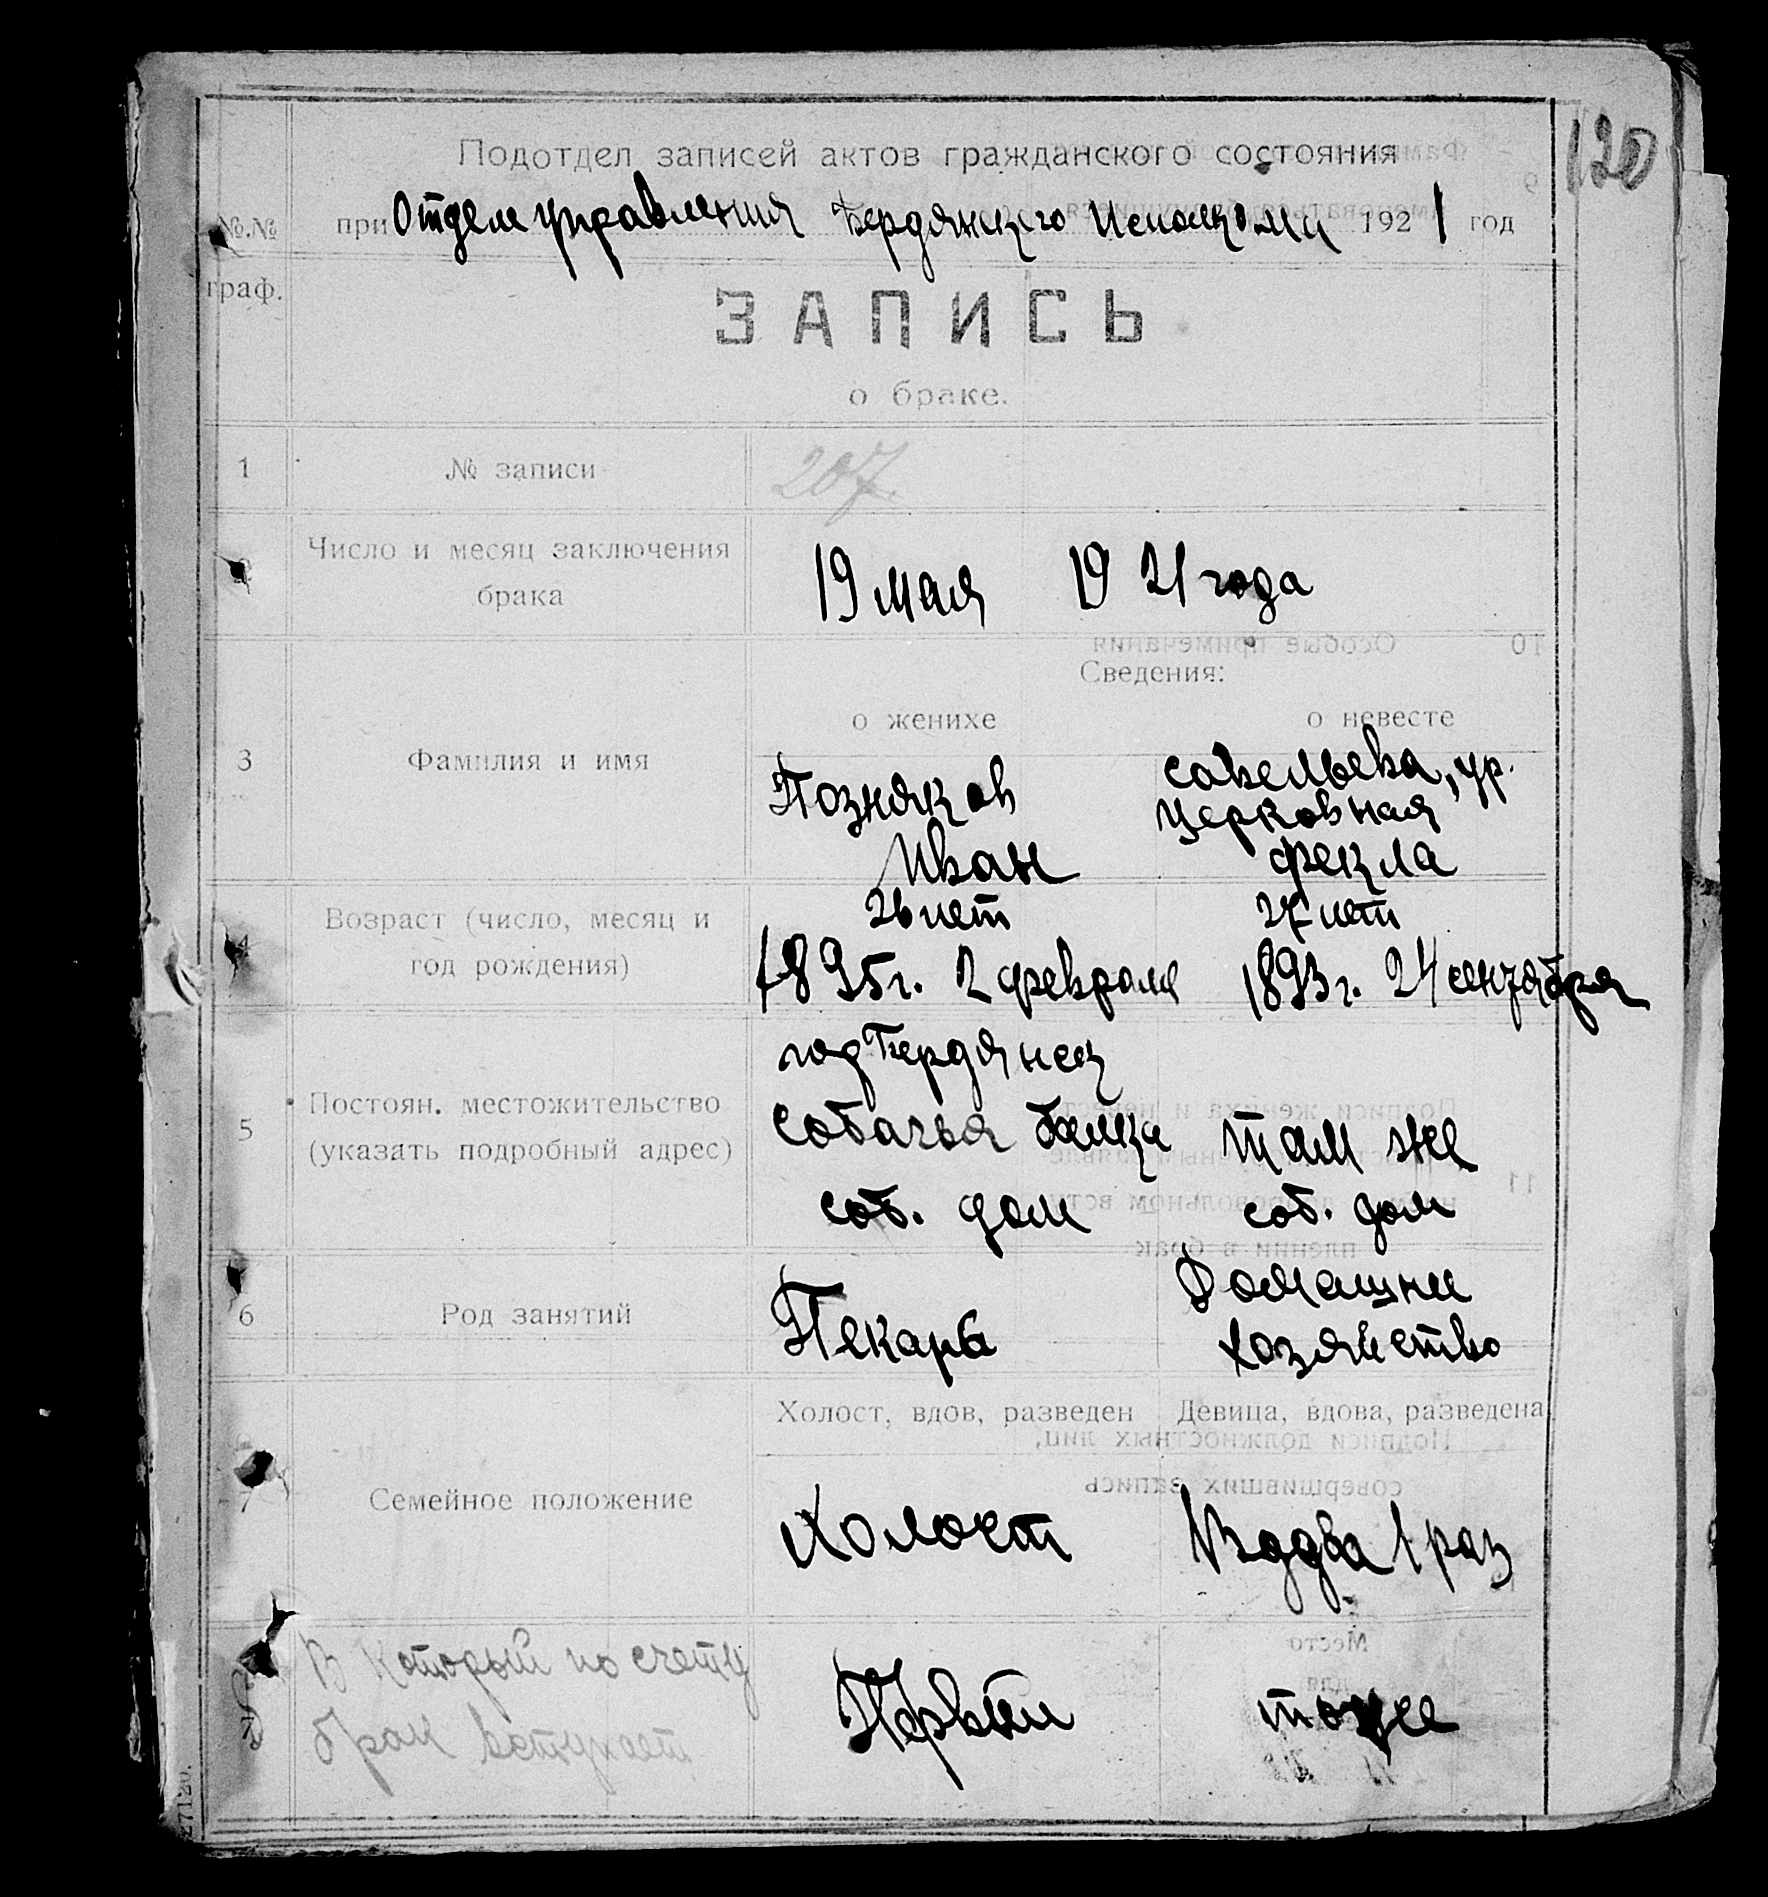 120
Подотдел записей актов гражданского состояния
№.№ при Отделе управления Бердянского Исполкома 1921 год
граф.
ЗАПИСЬ
о браке.
1 № записи 207.
2 Число и месяц заключения брака 19 мая 1921 года
Сведения:
о женихе о невесте
3 Фамилия и имя
Позняков Савельева, ур.
Церковная
Иван Фекла
26 лет 27 лет
4 Возраст (число, месяц и
год рождения)
1895 г. 2 февраля 1893 г. 24 сентября
гор Бердянск
5 Постоян. местожительство
(указать подробный адрес)
Собачья балка там же
соб. дом соб. дом
6 Род занятий
Пекарь Домашнее
хозяйство
Холост, вдов, разведен Девица, вдова, разведена
7 Семейное положение
Холост Вдова 1 раз
В который по счету
брак вступает
Первый тоже